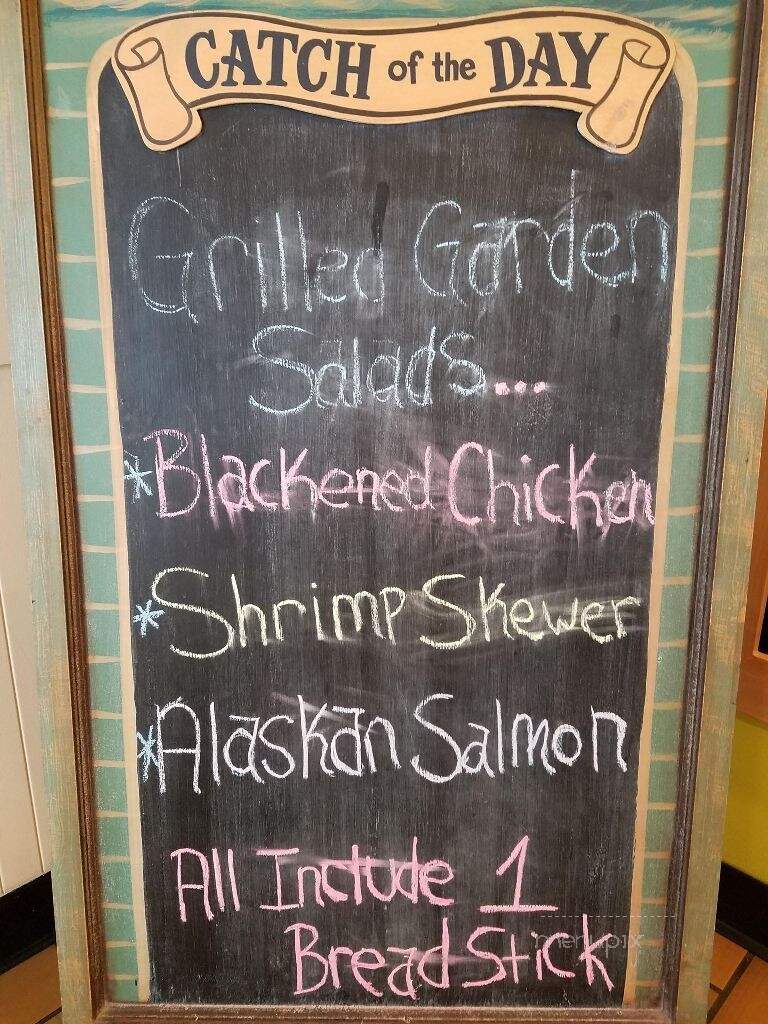 CATCH of the DAY
Grilled Garden
Salads...
*Blackened Chicken
*Shrimp Skewer
*Alaskan Salmon
All Include 1
Bread Stick
menupix